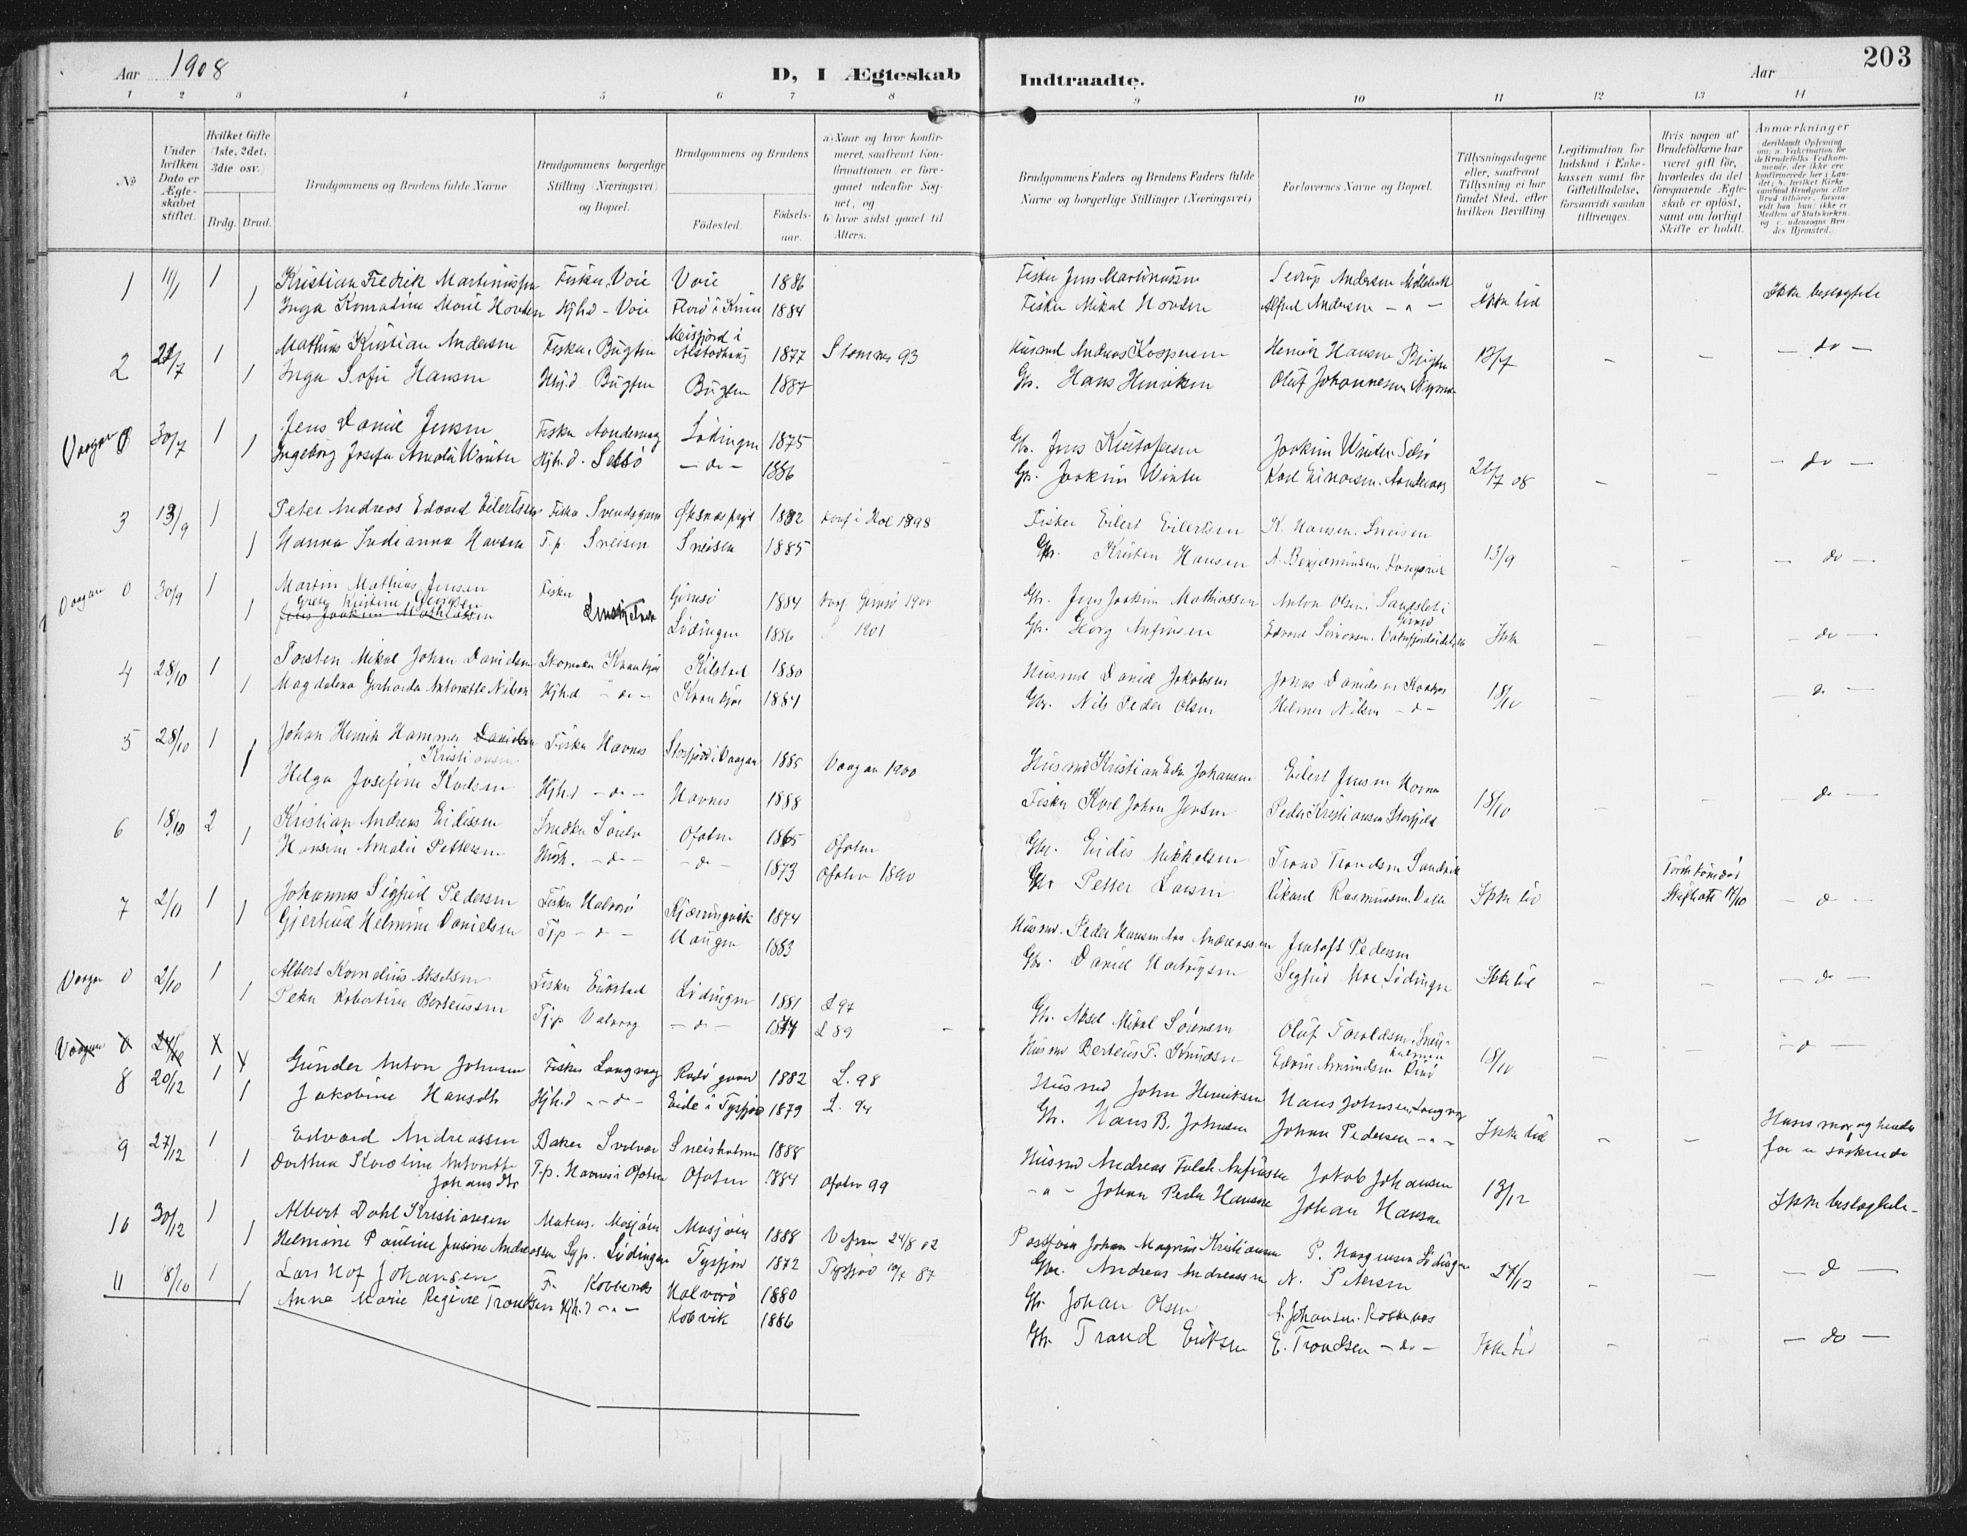 Aar 1908
D, I Ægteskab Indtraadte.
Aar
203
1 2 3 4 5 6 7 8 9 10 11 12 13 14
No
Under hvilken Dato er Ægteskabet stiftet.
Hvilket Gifte (1ste, 2det, 3die osv.)
Brdg. Brud.
Brudgommens og Brudens fulde Navne
Brudgommens borgerlige Stilling (Næringsvei) og Bopæl.
Brudgommens og Brudens
Fødested.
Fødselsaar.
a) Naar og hvor konfirmeret, saafremt Konfirmationen er foregaaet udenfor Sognet, og
b) hvor sidst gaaet til Alters.
Brudgommens Faders og Brudens Faders fulde Navne og borgerlige Stillinger (Næringsvei)
Forlovernes Navne og Bopæl.
Tillysningsdagene eller, saafremt Tillysning ei har fundet Sted, efter hvilken Bevilling
Legitimation for Indskud i Enkekassen samt for Giftetilladelse, forsaavidt saadan tiltrænges.
Hvis nogen af Brudefolkene har været gift før, hvorledes da det foregaaende Ægteskab er opløst, samt om lovligt Skifte er holdt.
Anmærkninger
1 11/1 1 Kristian Fredrik Martinussen Fisker, Voie Voie 1886 Fisker Jens Martinussen Andersen
1 Inga Konradine Marie Hovden Hjhd - Voie Florø i Kinn 1884 Fisker Mikal Hovden Alfred Andersen - " - Ikke tid Ikke beslegtede
2 1 Mathias Kristian Andersen Fisker, Bugten Meisfjord i Alstadhaug 1877 Stamnes 93 Husmd Andreas Kaspersen Henrik Hansen Bugten 13/7 - - - do -
1 Inga Sofie Hansen Hhjd Bugten Bugten 1887 Gbr. Hans Henriksen Oluf Johannesen
Vaagan 0 30/7 1 Jens Daniel Jensen Fisker Lødingen 1875 Gbr. Jens Kristofersen Joakim Winter
1 Ingeborg Josefa Amalie Winter Hjh.d. - do - 1886 Gbr. Joakim Winter Karl Einarsen 26/7 08 - - - do -
3 13/9 1 Peter Andreas Edvard Eilertsen Fisker Øksnes 1882 konf i Hol 1898 Fisker Eilert Eilertsen K. Hansen. Sneisen
1 Hanna Indianna Hansen T.p. Sneisen Sneisen 1885 Gbr. Kristen Hansen A. Benjaminsen. 13/9 - - - do -
Vaagan 0 30/9 1 Martin Mathias Jensen Fisker Gimsø 1884 konf Gimsø 1900 Gbr. Jens Joakim Mathiassen Anton Olsen, Gimsø
1 Grete Kristine Lødingen 1886 1901 Gbr. Georg Anfinsen Edvard Simonsen. Ikke - - do -
4 28/10 1 Torsten Mikal Johan Danielsen Kilstad 1880 Husmd Daniel Jakobsen Jonas Danielsen
1 Magdalena Gerharda Antonette Nilsen Hjhd - do - 1884 Gbr. Nils Peder Olsen Helmer Nilsen - d - 18/10 - - - do -
5 28/10 1 Johan Henrik Hammer Danielsen Kristiansen Fisker Havnes Storfjord i Vaagan 1885 Vaagan 1900 Husmd Kristian Johansen Eilert Jensen Havnes
1 Helga Josefine Karlsen Hjhd - do - Havnes 1888 Fisker Karl Johan Jensen Peder Kristiansen 18/10 - - - do -
6 18/10 2 Kristian Andreas Eidissen Ofoten 1865 Ofoten Gbr. Eidis Mikkelsen Trond Trondsen Sandvik
1 Hansine Amalie Pettersen - do - - do - 1873 Ofoten 1890 Gbr Petter Larsen Rikard Rasmussen Ikke tid 17/10 - d -
7 2/11 1 Johannes Sigfrid Pedersen Fisker Halvarø Kjærringvik 1874 Husmd. Peder Hansen Andreassen Jentoft Pedersen
1 Gjertrud Helmine Danielsen Tjp - d - Haugen 1883 Gbr. Daniel Hartvigsen Sigfrid Lødingen Ikke tid - - - do -
Vaagan 0 2/10 1 Albert Kornelius Akselsen Fisker Eukstad Lødingen 1881 L 97 Gbr. Aksel Mikal Sørensen Oluf Toraldsen
1 Petra Robertine Berteussen Tjp - d - 1874 L 89 Husmd Berteus T. Knudsen Edvin Amundsen 18/10 - - - d -
Vaagan 0 X X
8 20/12 1 Gunder Anton Johnsen Fisker Langvaag 1882 L. 98 Husmd John Henriksen Hans Johnsen, Langvaag
1 Jakobine Hansdtr Hjh.d - " - d - Eide i Tysfjord 1879 L. 94 Gbr. Hans B. Johnsen Johan Pedersen - " - Ikke tid - - Hans mor og hendes far er søskende
9 27/12 1 Edvard Andreassen Baker Svolvær Sneisholmen 1888 Husmd Andreas Falch Anfinsen Jakob Johansen
1 Dorthea Karoline Antonette Johansdtr T.p. Havnes i Ofoten Ofoten 1884 Ofoten 99 - " - Johan Peder Hansen Johan Hansen 13/12 Ikke beslegtede.
10 30/12 1 Albert Dahl Kristiansen Matros. Mosjøen Mosjøen 1888 Vefsn 24/8 02 Johan Magnus Kristiansen P. Lødingen
1 Helmine Pauline Jensine Andreassen Syp. Lødingen Tysfjord 1872 Tysfjord 10/7 87 Gbr. Andreas Andreassen N. Petersen 27/12 - - - d -
11 18/10 1 Lars Hof Johansen F. Kobbenes Halvarø 1880 Gbr Johan Olsen A. Johansen. Kobbenes
1 Anna Marie Regine Trondsen Hjh.d - " - Kobvik 1886 Gbr Trond Eriksen E. Trondsen - do - Ikke tid - - - do -